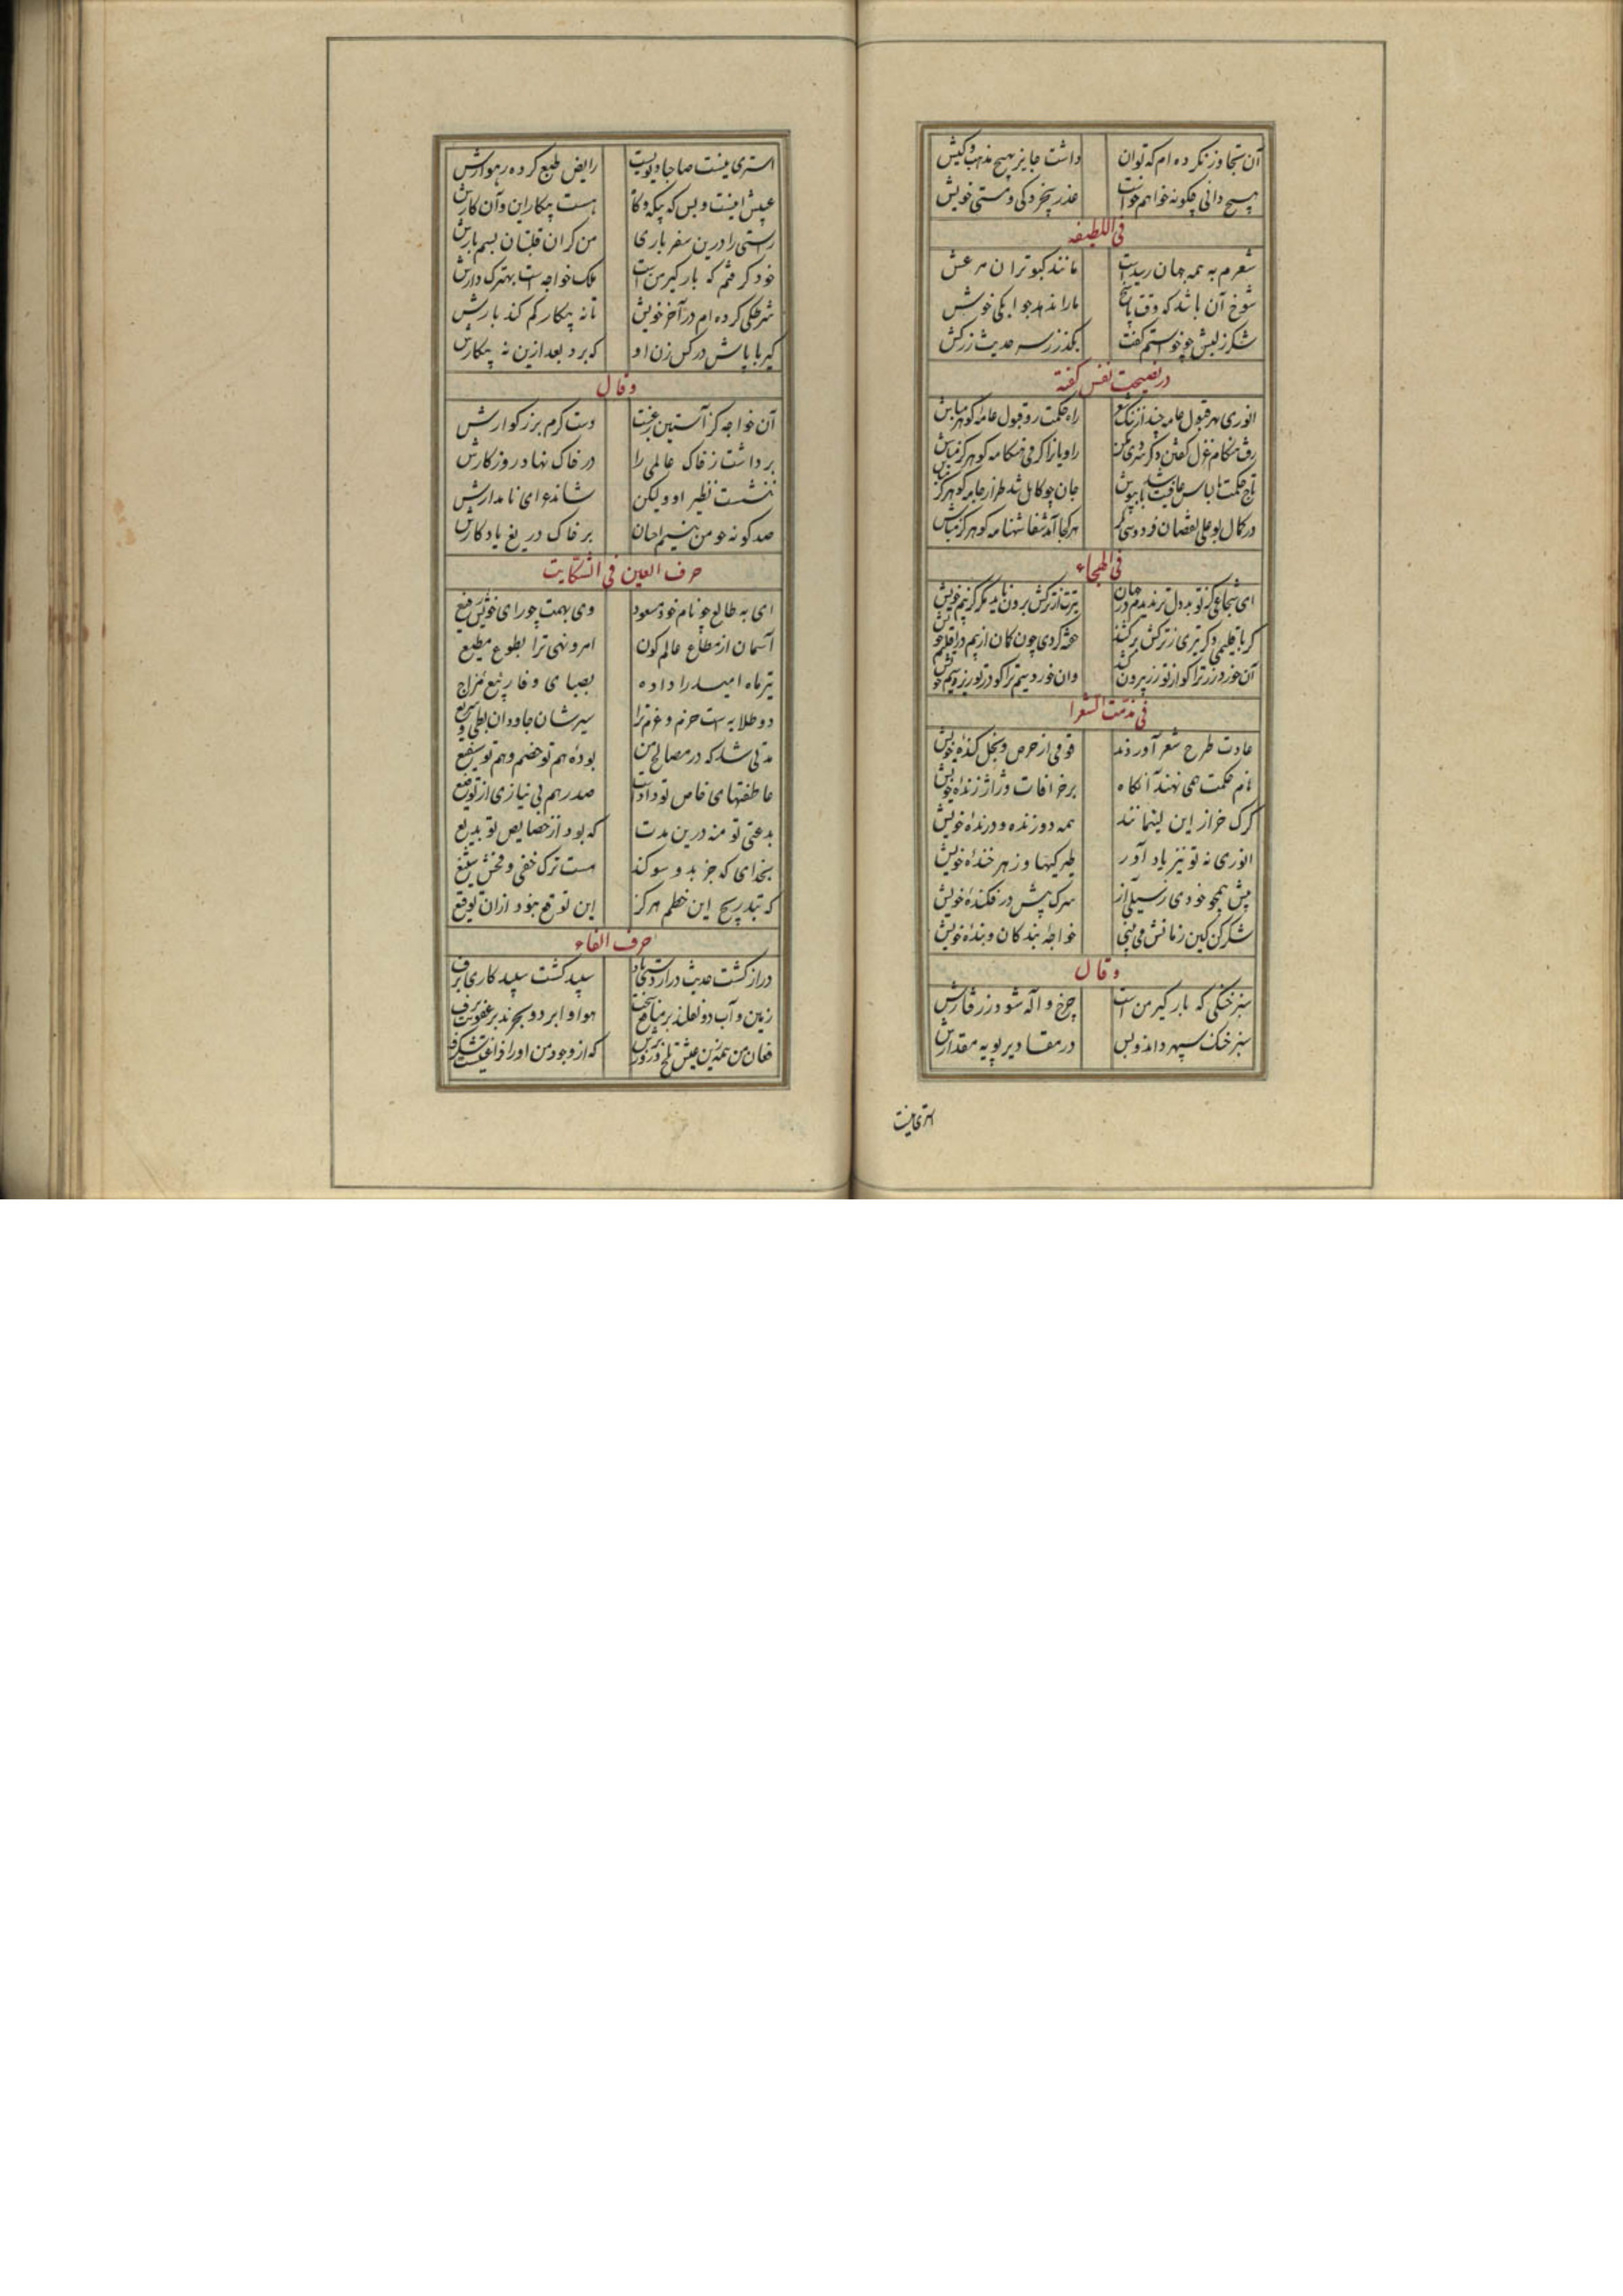 آن تجاوز نکرده ام که توان داشت جایز بهیچ مذهب و کیش
هیچ دانی چگونه خواهم خواست عذر بیخردکی و مستی خویش
فی اللطیفه
شعرم به همه جهان رسیدست مانند کبوتران مرعش
شوخ آن باشد که وقت پاسخ ما را ندهد جوابکی خوش
شکر ز لبش چو خواستم گفت بگذر ز سر حدیث زرکش
در نصیحت نفس گفته
انوری بهر قبول عامه چند از ننگ شعر راه حکمت رو قبول عامه گو هرگز مباش
رفت هنگام غزل گفتن دگر سردی مکن راویانرا گرمی هنگامه گو هرگز مباش
تاج حکمت با لباس عافیت باشد بپوش جان چو کامل شد طراز جامه گو هرگز مباش
در کمال بوعلی نقصان فردوسی نگر هر کجا آمد شفا شهنامه گو هرگز مباش
فی الهجاء
ای شجاعی که تو بددل تر ندیدم در جهان تیرت از ترکش برون ناید مگر از بیم خویش
آن خورد زر ترا کو از تو زر بیرون کند وان خورد بیم ترا کو در تو
فی مذمت الشعرا
عادت طرح شعر آوردند قومی از حرص و بخل گنده خویش
نام حکمت همی نهند آنگاه بر خرافات و ژاژ ژنده خویش
گرگ خر از این لئیمانند همه دوزنده و درنده خویش
انوری نه تو نیز یاد آور طیرگیها و زهر خنده خویش
پیش همچو خودی ز سیلی آز سرک پیش در فکنده خویش
شکر کن کین زمانش می بینی خواجه بندگان و بنده خویش
و قال
سبز خنگی که بارگیر من است چرخ واله شود ز رفتارش
سبز خنگ سپهر داند و بس در مقادیر پویه مقدارش
استری نیست
استری نیست صاحبا دیویست رایض طبع کرده رهوارش
عیبش اینست و بس که بیگه و گاه هست بیکار این و آن کارش
راستی را درین سفر باری من گران قلتبان بسم بارش
خود گرفتم که بارگیر من است ملک خواجه است بهترک دارش
شرطکی کرده ام در آخر خویش تا نه بیکار کم کند بارش
کیر با پاش در کس زن او که برد بعد ازین نه بیکارش
و قال
آن خواجه کز آستین رغبت دست کرم بزرگوارش
برداشت ز خاک عالمی را در خاک نهاد روزگارش
ننشست نظیر او ولیکن شاندهای نامدارش
صد گونه چو من یتیم احسان بر خاک دریغ یادگارش
حرف العین فی الشکایت
ای به طالع چو نام خود مسعود وی بهمت چو رای خویش رفیع
آسمان از مطلع عالم کون امر و نهی ترا بطوع مطیع
تیرماه امید را داده بصبای وفا ربیع مزاج
دو طلایه ست حزم و عزم ترا سیرشان جاودان بطی و سریع
مدتی شد که در مصالح من بوده هم تو خصم و هم تو شفیع
عاطفتهای خاص تو دادست صدرهم بی نیازی از توقیع
بدعتی تو منه درین مدت که بود از خصایص تو بدیع
بخدای که جز بدو سوگند هست ترک خفی و فحش شنیع
که بتدریج این خطم هرگز این توقع نبود ازان توقیع
حرف الفاء
دراز گشت حدیث درازدستی باد سپید گشت سپیدکاری برف
زمین و آب دو فعلند بر مباح هوا و ابر دو بحرند بر عفونت برف
فغان من همه زین عیش تلخ و روی ترش که از وجود من او را فراغتیست شگرف